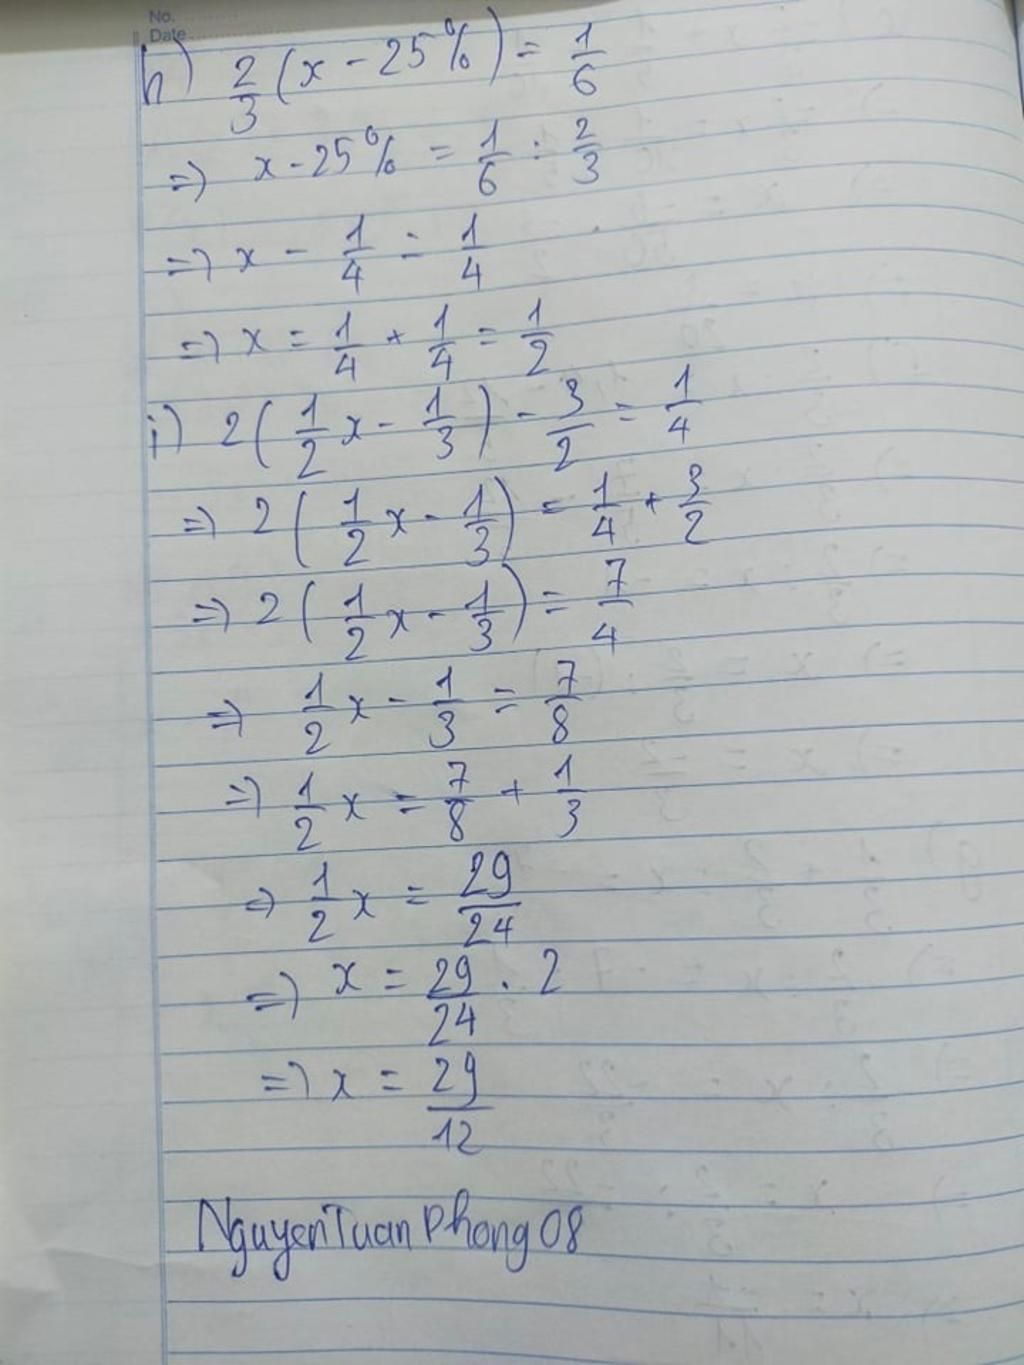 No.
Date
h) 2/3 (x - 25%) = 1/6
=) x - 25% = 1/6 : 2/3
=) x - 1/4 = 1/4
=) x = 1/4 + 1/4 = 1/2
i) 2 ( 1/2 x - 1/3 ) - 3/2 = 1/4
=) 2 ( 1/2 x - 1/3 ) = 1/4 + 3/2
=) 2 ( 1/2 x - 1/3 ) = 7/4
=) 1/2 x - 1/3 = 7/8
=) 1/2 x = 7/8 + 1/3
=) 1/2 x = 29/24
=) x = 29/24 . 2
=) x = 29/12
NguyenTuanPhong08